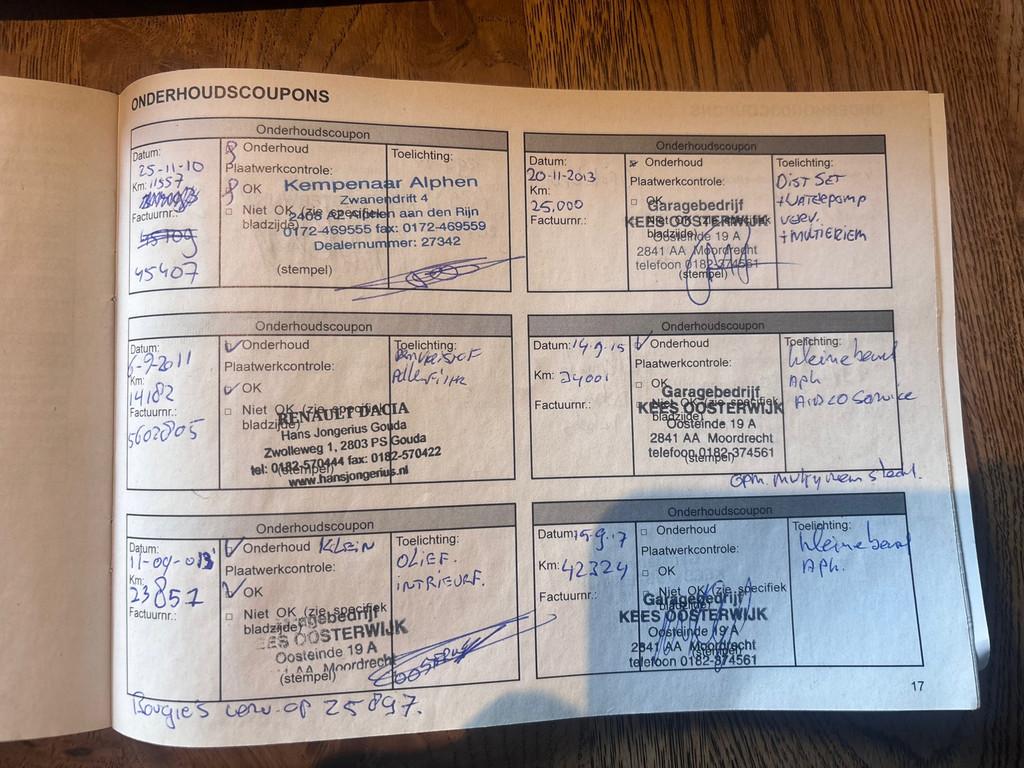 ONDERHOUDSCOUPONS
Onderhoudscoupon
Datum:
25-11-10
Km: 11557
Factuurnr.:
45407
Onderhoud
Plaatwerkcontrole:
OK
Niet OK (zie specifiek
bladzijde)
(stempel)
Toelichting:
Kempenaar Alphen
Zwanendrift 4
2408 AZ Alphen aan den Rijn
0172-469555 fax: 0172-469559
Dealernummer: 27342
Onderhoudscoupon
Datum:
20-11-2013
Km:
25.000
Factuurnr.:
Onderhoud
Plaatwerkcontrole:
OK
Niet OK (zie specifiek
bladzijde)
(stempel)
Garagebedrijf
KEES OOSTERWIJK
Oosteinde 19 A
2841 AA Moordrecht
telefoon 0182-374561
Toelichting:
DIST SET
+WATERPOMP
verv.
+MULTIERIEM
Onderhoudscoupon
Datum:
6-9-2011
Km:
14182
Factuurnr.:
5602805
Onderhoud
Plaatwerkcontrole:
OK
Niet OK (zie specifiek
bladzijde)
(stempel)
Toelichting:
RENAULT DACIA
Hans Jongerius Gouda
Zwolleweg 1, 2803 PS Gouda
tel: 0182-570444 fax: 0182-570422
www.hansjongerius.nl
Onderhoudscoupon
Datum: 14.9.15
Km: 34001
Factuurnr.:
Onderhoud
Plaatwerkcontrole:
OK
Niet OK (zie specifiek
bladzijde)
(stempel)
Garagebedrijf
KEES OOSTERWIJK
Oosteinde 19 A
2841 AA Moordrecht
telefoon 0182-374561
Toelichting:
kleine beurt
APK
Airco Service
Onderhoudscoupon
Datum:
11-09-013
Km:
23857
Factuurnr.:
Onderhoud KLEIN
Plaatwerkcontrole:
OK
Niet OK (zie specifiek
bladzijde)
(stempel)
Toelichting:
OLIEF.
INTRIEURF.
Garagebedrijf
KEES OOSTERWIJK
Oosteinde 19 A
AA Moordrecht
Bougie's verv. op 25897.
Onderhoudscoupon
Datum: 15.9.17
Km: 42324
Factuurnr.:
Onderhoud
Plaatwerkcontrole:
OK
Niet OK (zie specifiek
bladzijde)
(stempel)
Garagebedrijf
KEES OOSTERWIJK
Oosteinde 19 A
2841 AA Moordrecht
telefoon 0182-374561
Toelichting:
kleine beurt
APK.
17